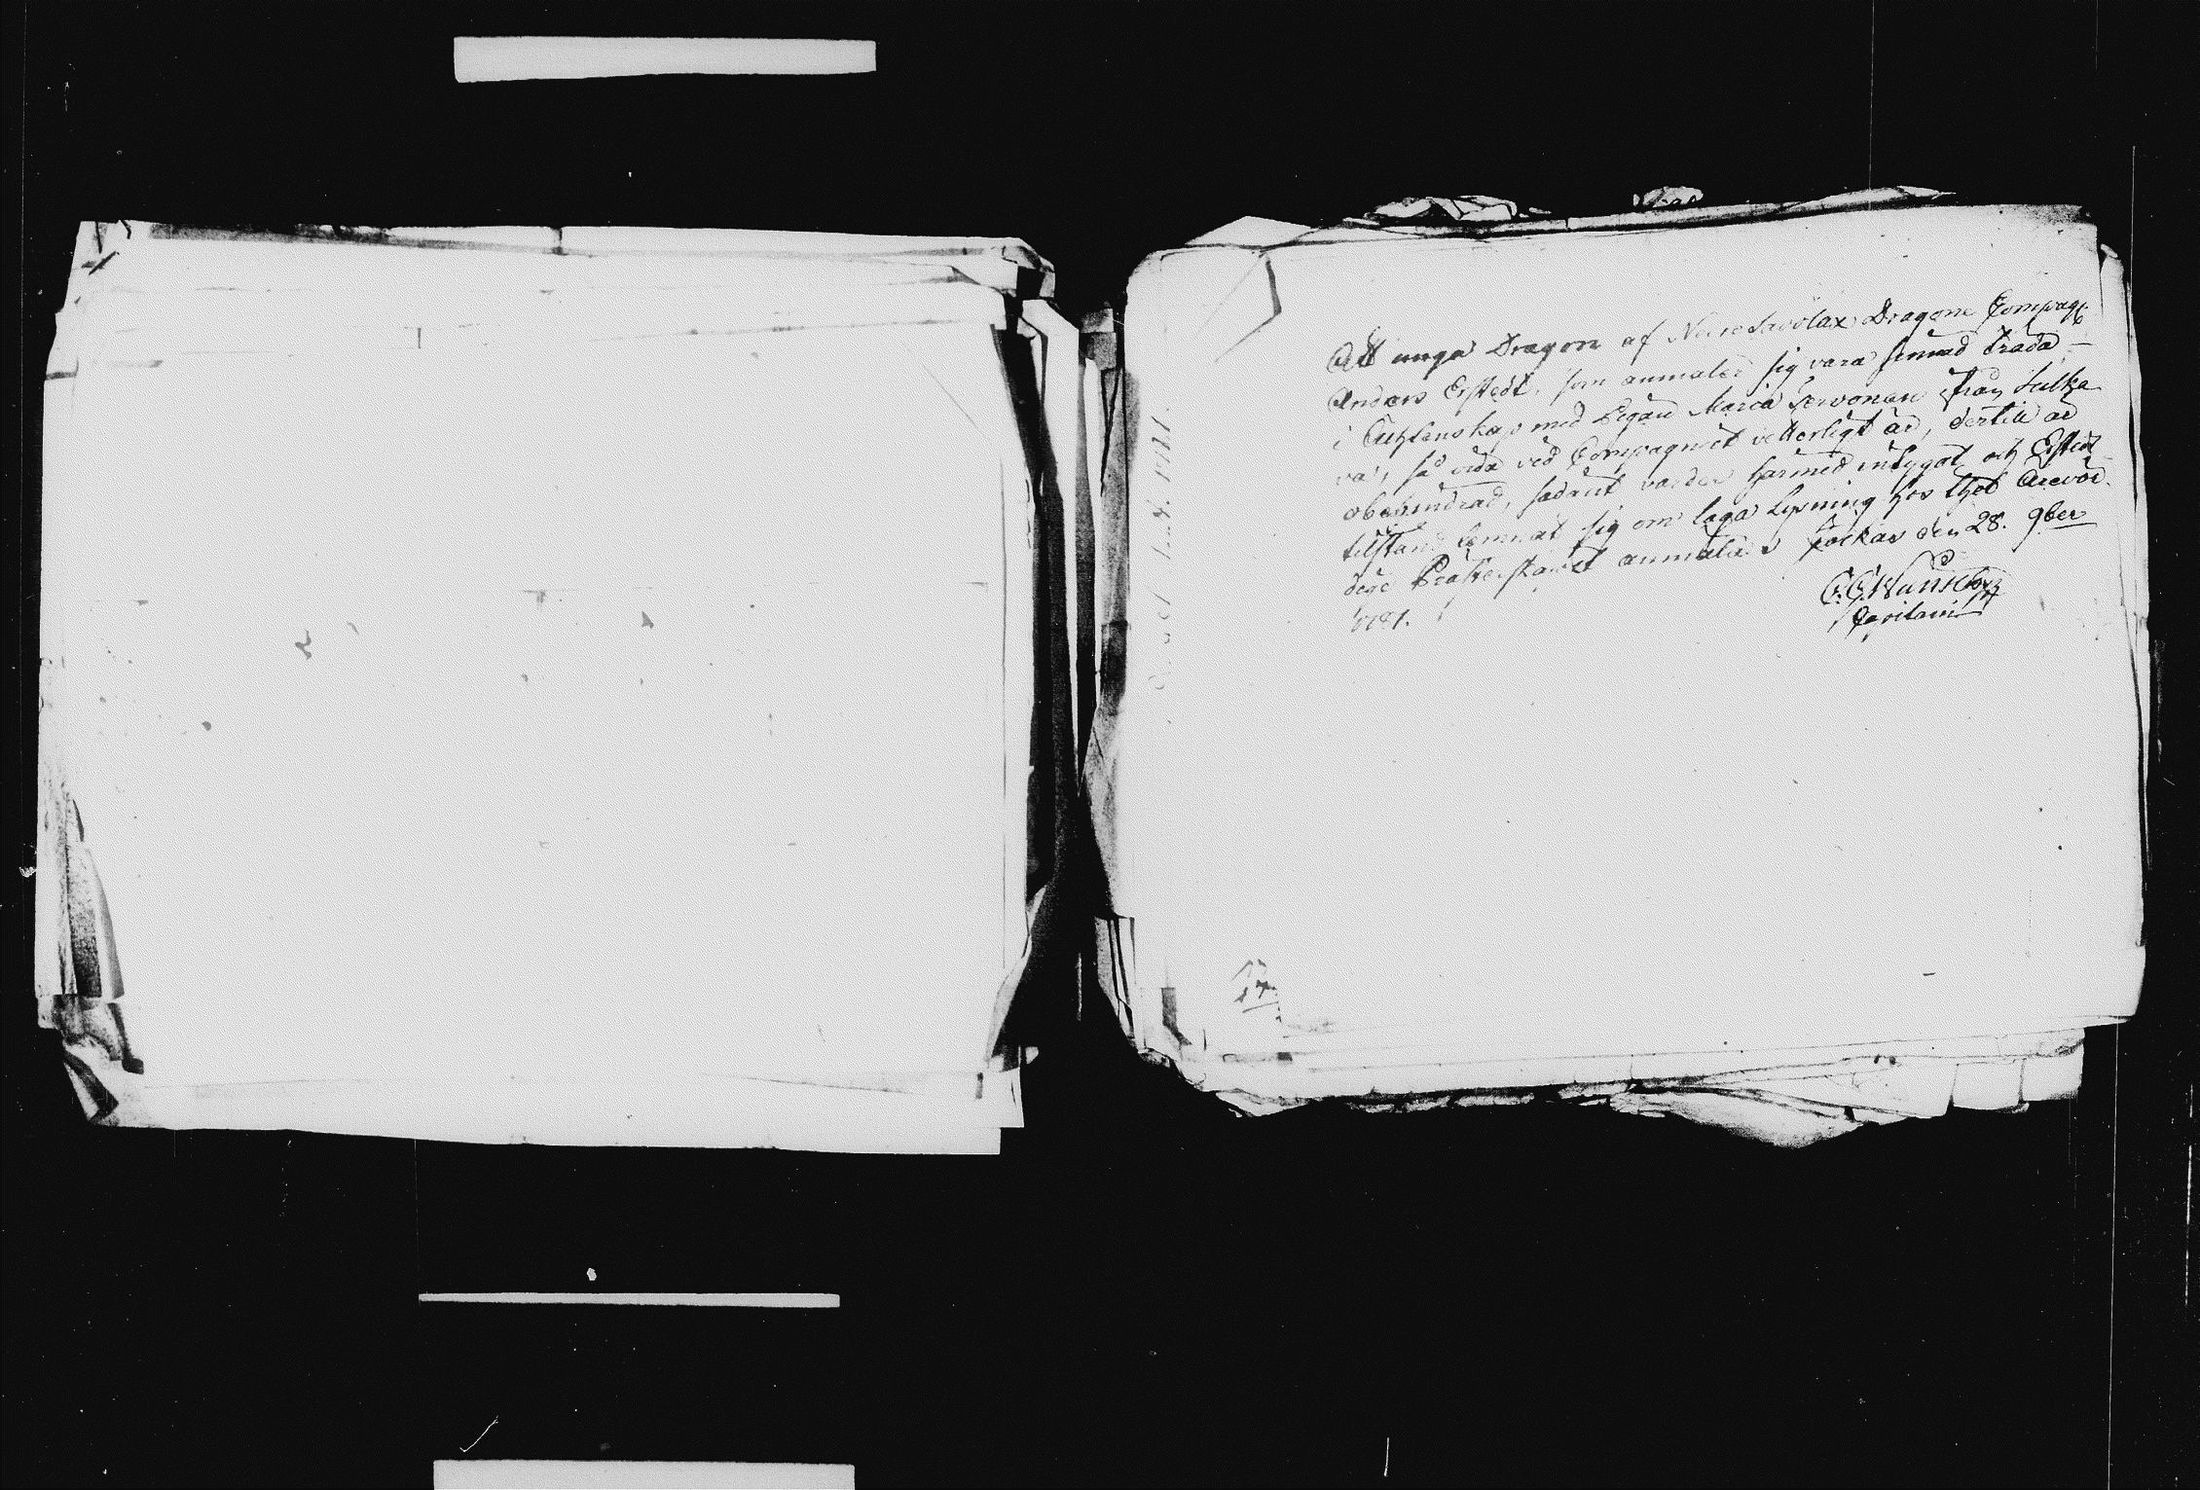 Att unga Dragon af Nure Savolax Dragone Compagn:
Anders Esstedt, som anmäler sig vara sinnad träda
i Ächtenskap med Pigan Maria Servonen från Sulka
va, så vida ved Compagniet vetterligt är, dertill är
obehindrad, sådant varder härmed intygat och Esstedt
tilstånd lemnat sig om laga Lysning hos thet Ärevör
dige Prästerskapet anmäla. Jockas den 28. 9ber
1781.
Capitain
17